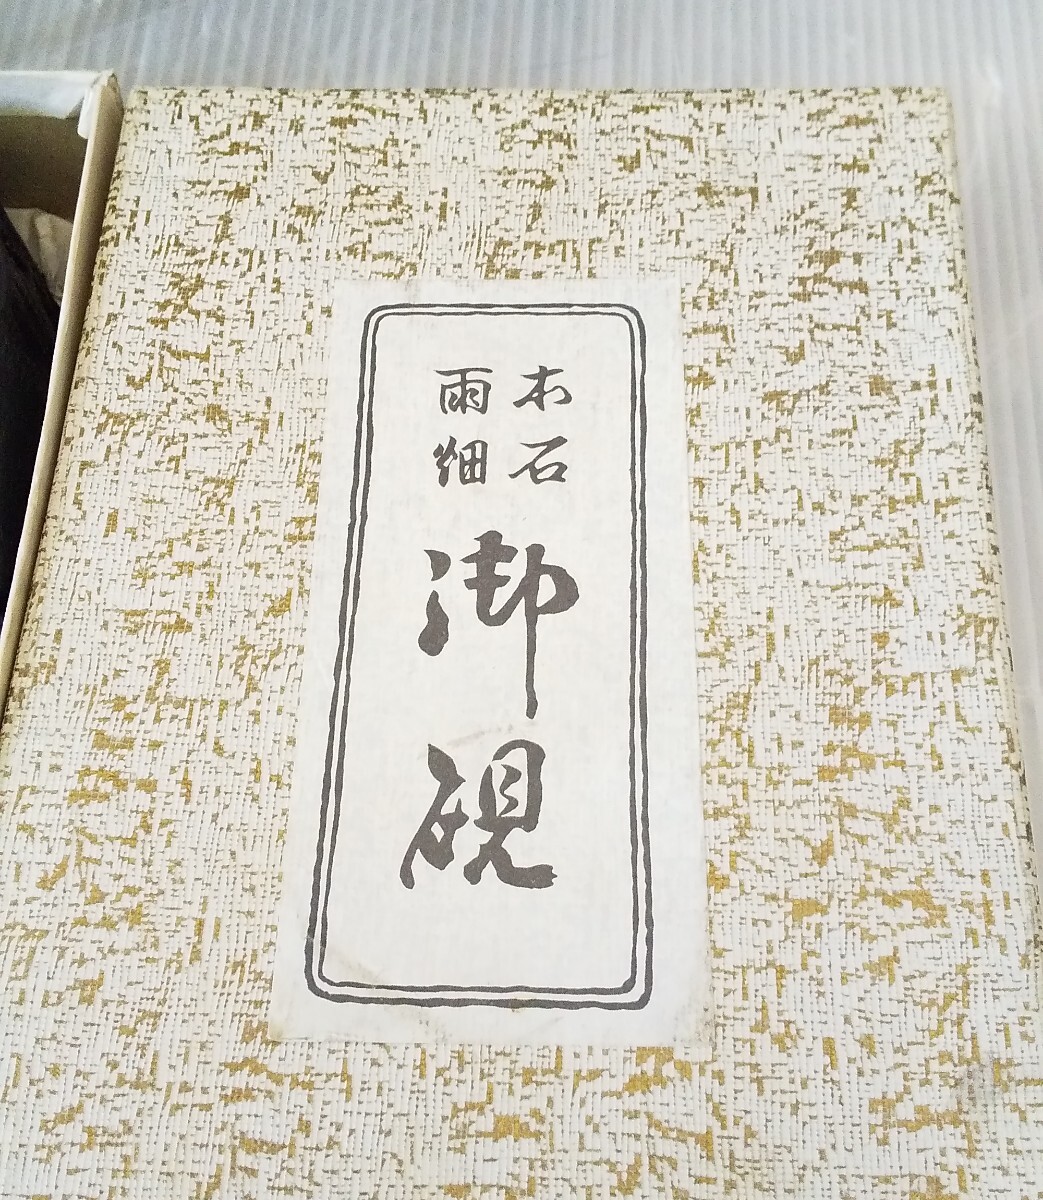 本石
雨畑
御硯